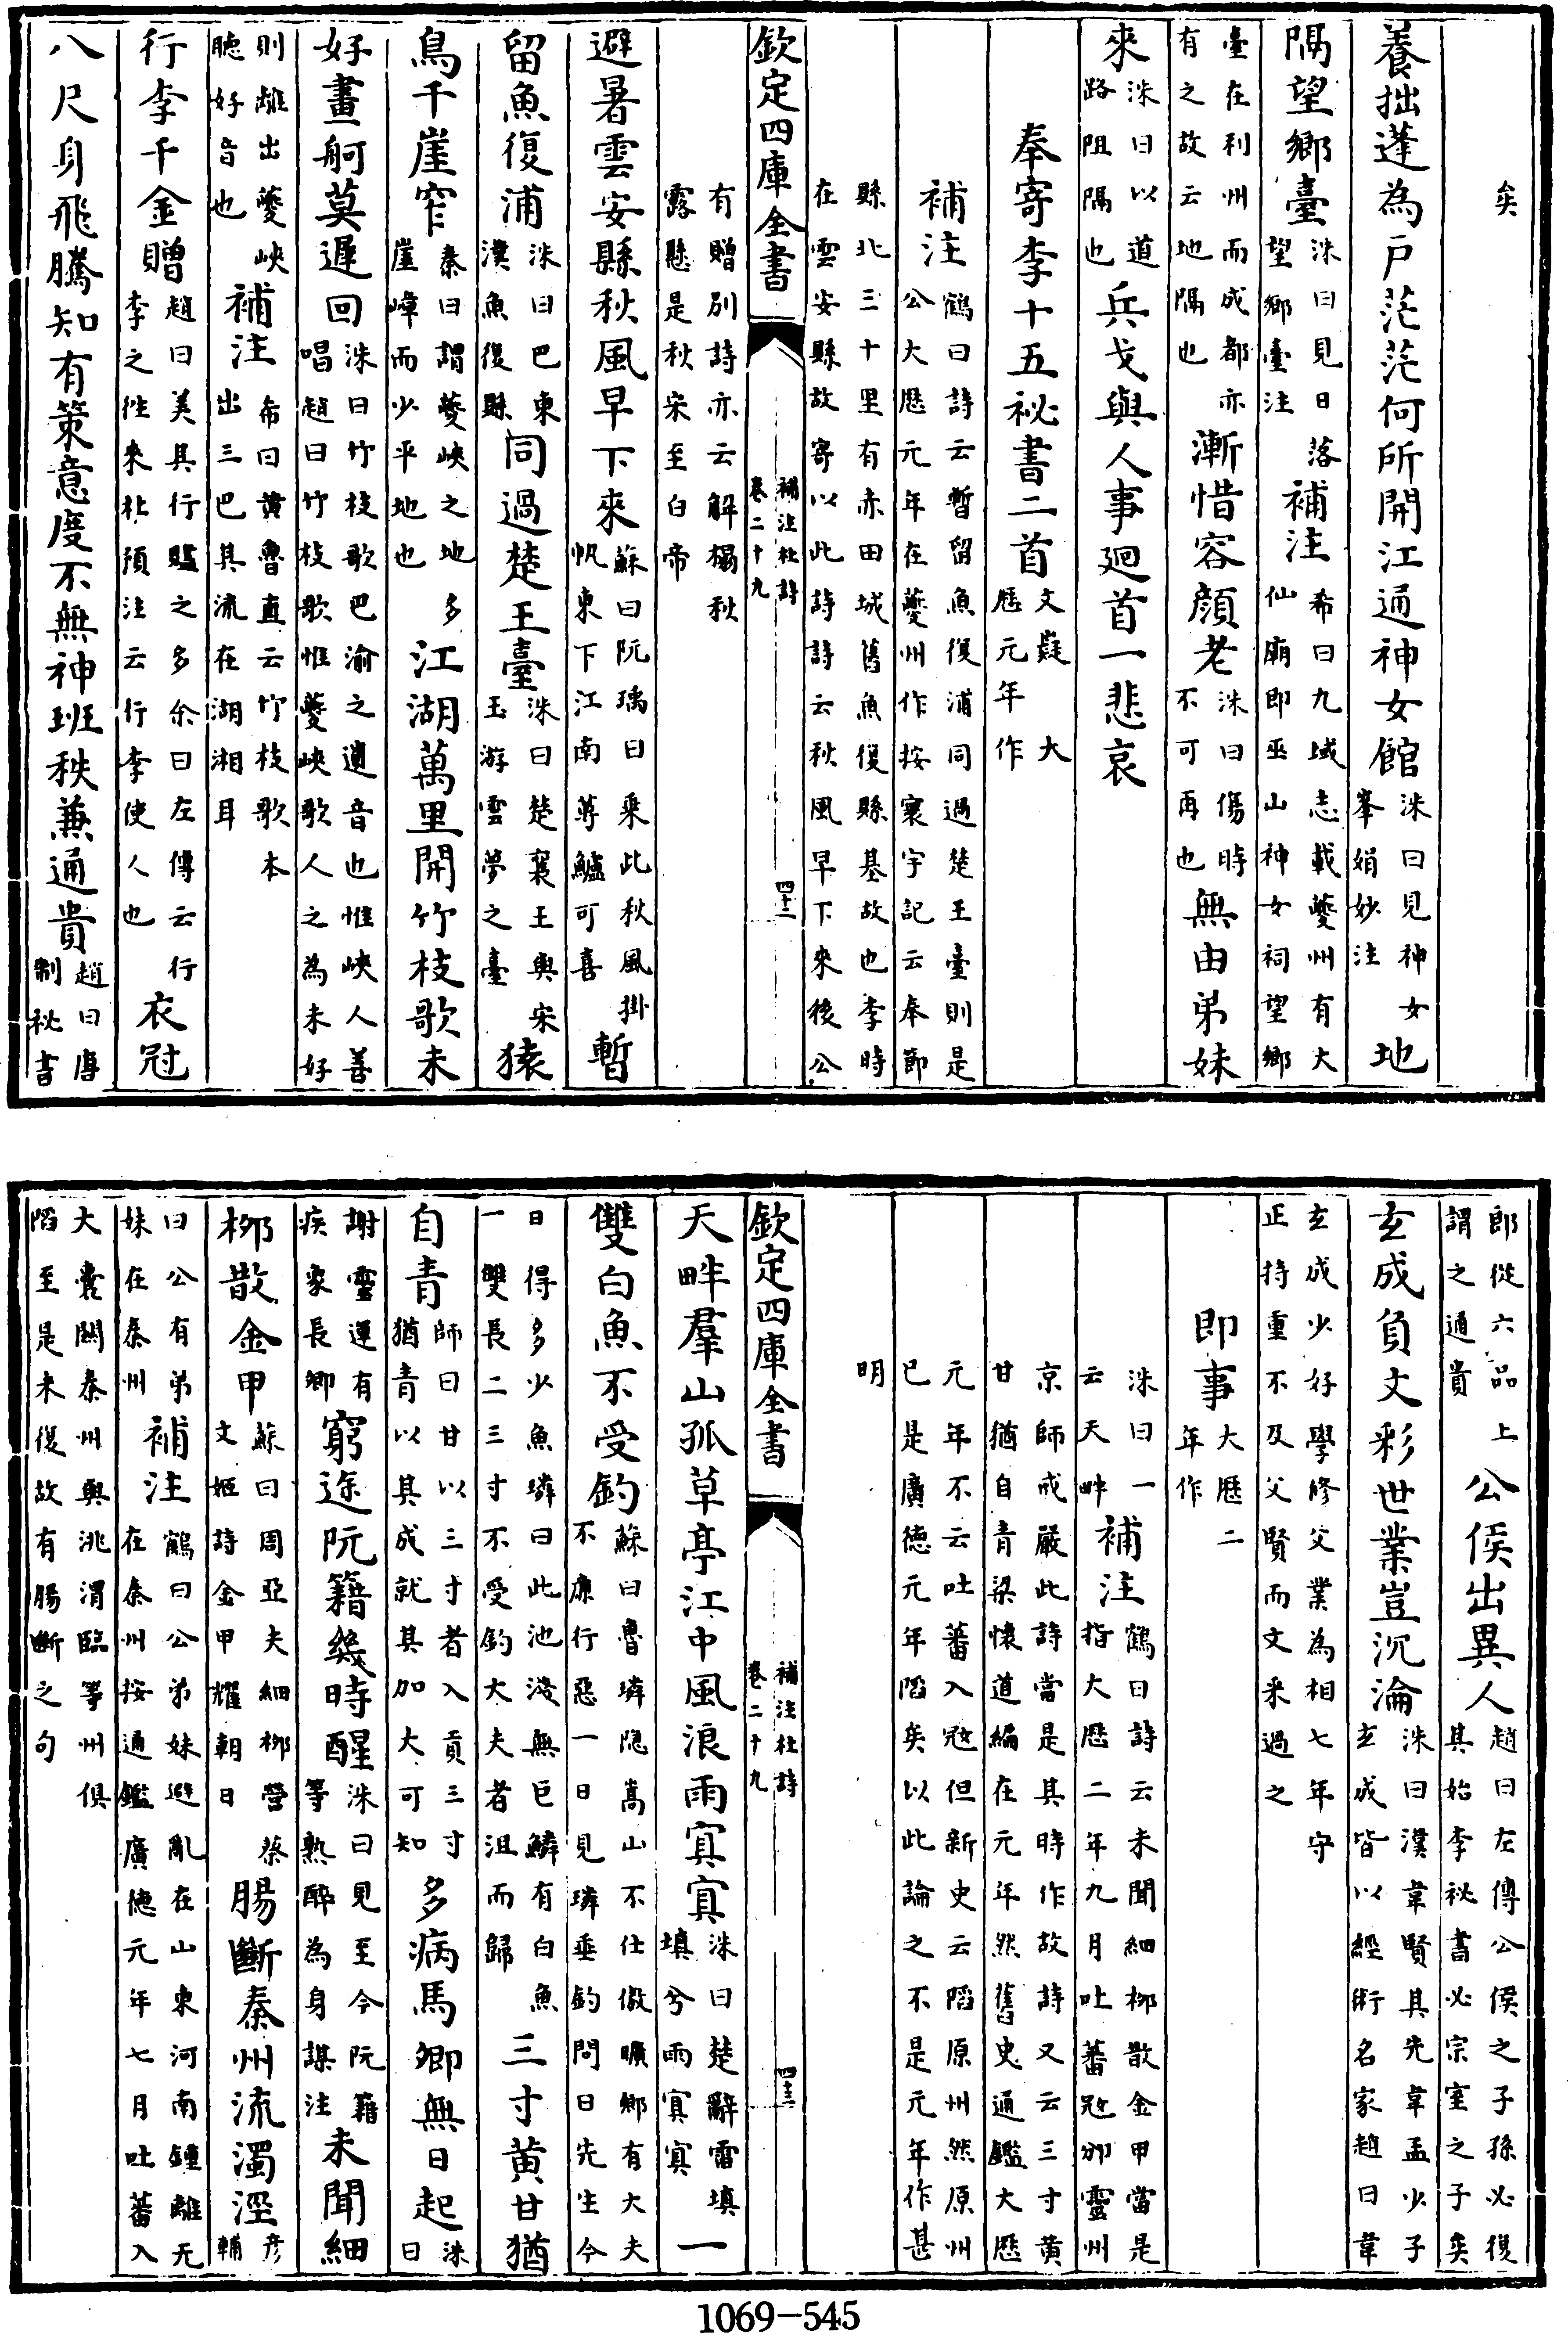 矣
養拙蓬為戶茫茫何所開江通神女館洙曰見神女峯娟妙注地
隔望鄉臺洙曰見日落望鄉臺注補注希曰九域志載夔州有大仙廟即巫山神女祠望鄉
臺在利州而成都亦有之故云地隔也漸惜容顔老洙曰傷時不可再也無由弟妹
來洙曰以道路阻隔也兵戈與人事廻首一悲哀
奉寄李十五祕書二首文嶷大歷元年作
補注鶴曰詩云暫留魚復浦同過楚王臺則是公大歷元年在夔州作按寰宇記云奉節
縣北三十里有赤田城舊魚復縣基故也李時在雲安縣故寄以此詩詩云秋風早下來後公
欽定四庫全書 補注杜詩 卷二十九 四十二
有贈別詩亦云解榻秋露懸是秋宋至白帝
避暑雲安縣秋風早下來蘇曰阮瑀曰乘此秋風掛帆東下江南蓴鱸可喜暫
留魚復浦洙曰巴東漢魚復縣同過楚王臺洙曰楚襄王與宋玉游雲夢之臺猿
鳥千崖窄秦曰謂夔峽之地多崖嶂而少平地也江湖萬里開竹枝歌未
好畫舸莫遲回洙曰竹枝歌巴渝之遺音也惟峽人善唱趙曰竹枝歌惟夔峽歌人之為未好
則離出夔峽聴好音也補注希曰黄魯直云竹枝歌本出三巴其流在湖湘耳
行李千金贈趙曰美其行贐之多余曰左傳云行李之徃來杜預注云行李使人也衣冠
八尺身飛騰知有策意度不無神班秩兼通貴趙曰唐制秘書
郎從六品上謂之通貴公侯出異人趙曰左傳公侯之子孫必復其始李祕書必宗室之子矣
玄成負文彩世業豈沉淪洙曰漢韋賢其先韋孟少子玄成皆以經術名家趙曰韋
玄成少好學修父業為相七年守正持重不及父賢而文采過之
即事大歷二年作
洙曰一云天畔補注鶴曰詩云未聞細柳散金甲當是指大歷二年九月吐蕃冦邠靈州
京師戒嚴此詩當是其時作故詩又云三寸黄甘猶自青梁懷道編在元年然舊史通鑑大歷
元年不云吐蕃入冦但新史云陷原州然原州已是廣德元年陷矣以此論之不是元年作甚
明
欽定四庫全書 補注杜詩 卷二十九 四十三
天畔羣山孤草亭江中風浪雨冥冥洙曰楚辭雷填填兮雨冥冥一
雙白魚不受釣蘇曰魯璘隠嵩山不仕傲曠鄉有大夫不廉行惡一日見璘垂釣問曰先生今
日得多少魚璘曰此池淺無巨鱗有白魚一雙長二三寸不受釣大夫者沮而歸三寸黄甘猶
自青師曰甘以三寸者入貢三寸猶青以其成就其加大可知多病馬卿無日起洙曰
謝靈運有疾象長卿窮途阮籍幾時醒洙曰見至今阮籍等熟醉為身謀注未聞細
柳散金甲蘇曰周亞夫細柳營蔡文姬詩金甲耀朝日腸斷秦州流濁涇彦輔
曰公有弟妹在秦州補注鶴曰公弟妹避亂在山東河南鍾離无在秦州按通鑑廣德元年七月吐蕃入
大震關秦州與洮渭臨等州俱陷至是未復故有腸斷之句
1069-545